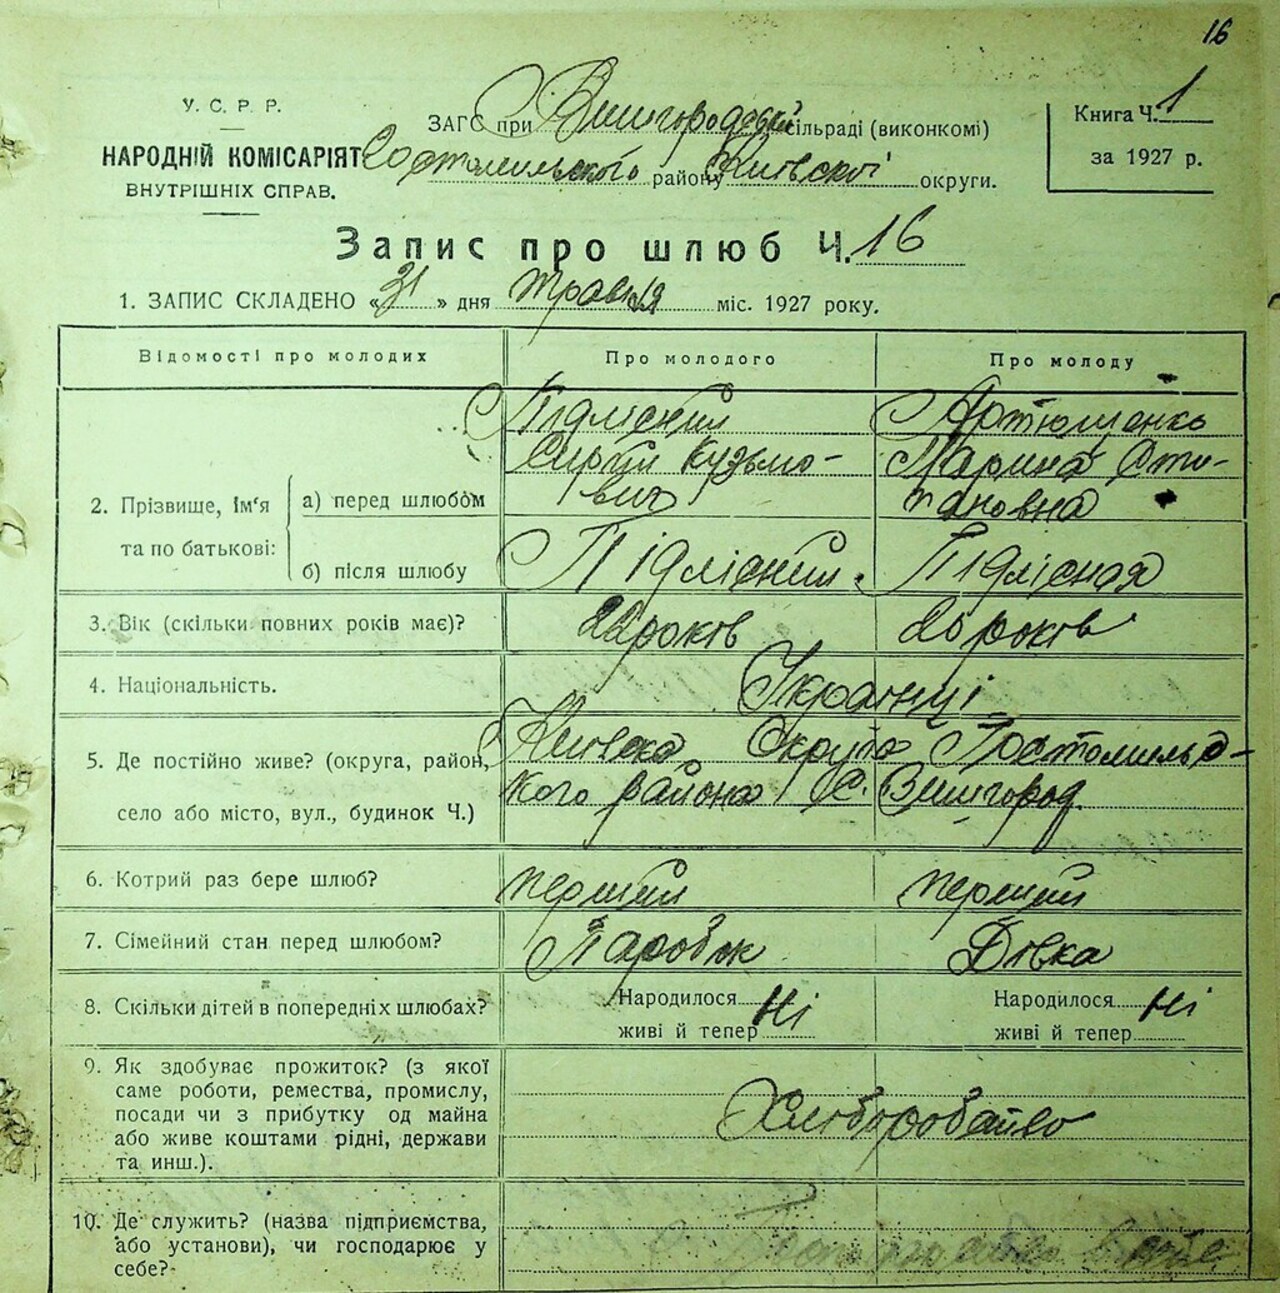 16
У. С. Р. Р.
НАРОДНІЙ КОМІСАРІЯТ
ВНУТРІШНІХ СПРАВ.
ЗАГС при Вишгородській сільраді (виконкомі)
Гостомильського району Київскої округи.
Книга Ч. 1
за 1927 р.
Запис про шлюб Ч. 16
1. ЗАПИС СКЛАДЕНО « 31 » дня травня міс. 1927 року.
Відомості про молодих Про молодого Про молоду
2. Прізвище, ім‘я та по батькові:
а) перед шлюбом
Підліский Артюшенко
Сиргій Кузьмо- Марина Сти-
вич пановна
б) після шлюбу Підліский Підлісная
3. Вік (скільки повних років має)? років 20 років
4. Національність. Українці
5. Де постійно живе? (округа, район, Київска Округа Гостомильс-
село або місто, вул., будинок Ч.) кого района С. Вишгород.
6. Котрий раз бере шлюб? перший перший
7. Сімейний стан перед шлюбом? Паробок Дівка
8. Скільки дітей в попередніх шлюбах? Народилося Ні Народилося Ні
живі й тепер живі й тепер
9. Як здобуває прожиток? (з якої
саме роботи, ремества, промислу,
посади чи з прибутку од майна Хлиборобство
або живе коштами рідні, держави
та инш.).
10. Де служить? (назва підприємства,
або установи), чи господарює у
себе?